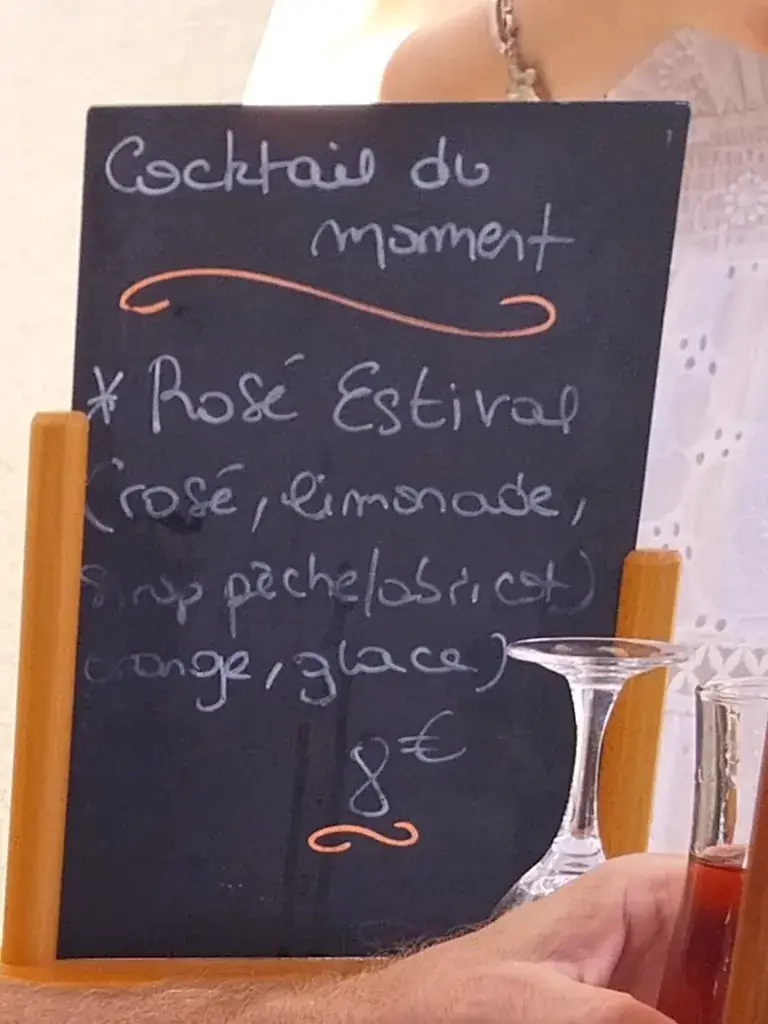 Cocktail du
moment
* Rosé Estival
(rosé, limonade,
sirop pêche/abricot)
orange, glace)
8€